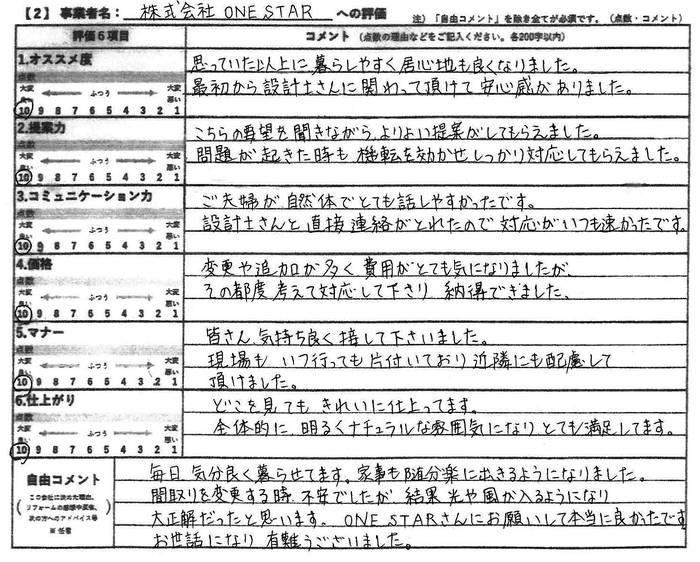 【2】事業者名: 株式会社 ONE STAR への評価
注)「自由コメント」を除き全てが必須です。(点数・コメント)
評価6項目
コメント(点数の理由などをご記入ください。各200字以内)
1.オススメ度
点数
大変良い ふつう 大変悪い
10 9 8 7 6 5 4 3 2 1
思っていた以上に暮らしやすく居心地も良くなりました。
最初から設計士さんに関わって頂けて安心感がありました。
2.提案力
点数
大変良い ふつう 大変悪い
10 9 8 7 6 5 4 3 2 1
こちらの要望を聞きながら、よりよい提案がしてもらえました。
問題が起きた時も機転を効かせしっかり対応してもらえました。
3.コミュニケーション力
点数
大変良い ふつう 大変悪い
10 9 8 7 6 5 4 3 2 1
ご夫婦が自然体でとても話しやすかったです。
設計士さんと直接連絡がとれたので対応がいつも速かったです。
4.価格
点数
大変良い ふつう 大変悪い
10 9 8 7 6 5 4 3 2 1
変更や追加が多く費用がとても気になりましたが、
その都度考えて対応して下さり納得できました、
5.マナー
点数
大変良い ふつう 大変悪い
10 9 8 7 6 5 4 3 2 1
皆さん、気持ち良く接して下さいました。
現場もいつ行っても片付いており近隣にも配慮して
頂けました。
6.仕上がり
点数
大変良い ふつう 大変悪い
10 9 8 7 6 5 4 3 2 1
どこを見てもきれいに仕上ってます。
全体的に明るくナチュラルな雰囲気になりとても満足してます。
自由コメント
この会社に決めた理由、
リフォームの感想や変化、
次の方へのアドバイス等
※任意
毎日気分良く暮らせてます。家事も随分楽に出きるようになりました。
間取りを変更する時、不安でしたが、結果光や風が入るようになり
大正解だったと思います。ONE STARさんにお願いして本当に良かったです
お世話になり有難うございました。